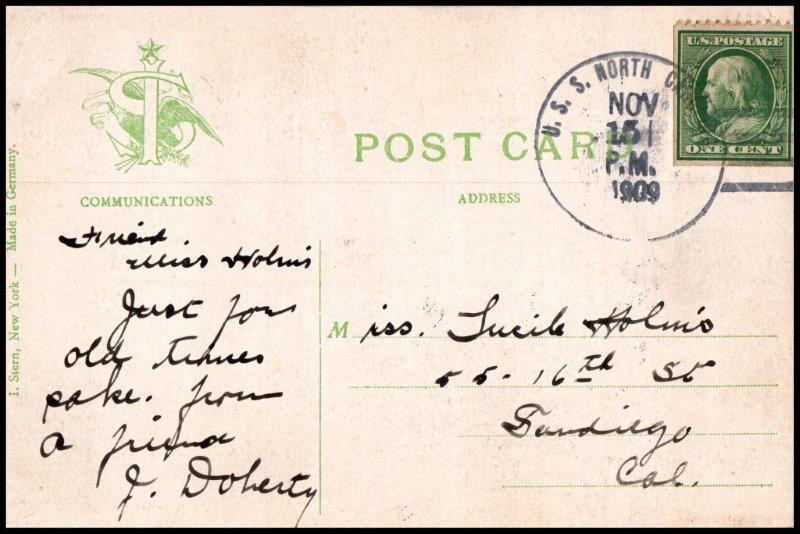 U.S. POSTAGE
ONE CENT
U. S. S. NORTH
NOV
15
P.M.
1909
POST CARD
COMMUNICATIONS
ADDRESS
I. Stern, New York — Made in Germany.
Friend
Miss Holmis
Just for
old times
sake. from
a friend
J. Doherty
Miss. Lucile Holmis
55-16th St
Sandiego
Cal.